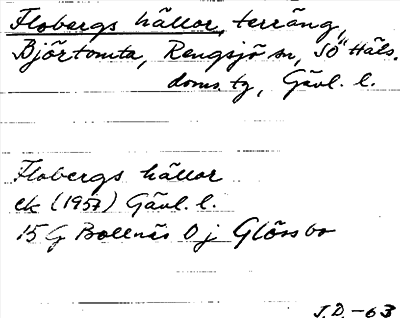 Flobergs hällor, terräng,
Björtomta, Rengsjö sn, Sö Häls.
doms. tg, Gävl. l.
Flobergs hällor
ek (1957) Gävl. l.
15 G Bollnäs 0 j Glössbo
J.D. -63